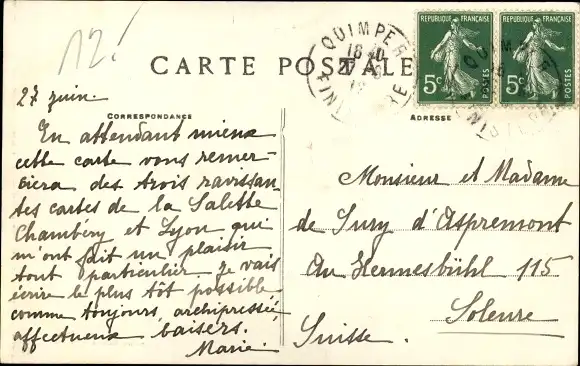 12.
CARTE POSTALE
QUIMPER
RÉPUBLIQUE FRANÇAISE
5c
POSTES
RÉPUBLIQUE FRANÇAISE
5c
POSTES
27 juin.
CORRESPONDANCE
En attendant mieux
cette carte vous remer-
ciera des trois ravissan-
tes cartes de la Salette
Chambéry et Lyon qui
m'ont fait un plaisir
tout particulier. Je vais
écrire le plus tôt possible
comme toujours, archipressée,
affectueux baisers.
Marie.
ADRESSE
Monsieur et Madame
de Sury d'Aspremont
Au Hermesbühl 115
Soleure
Suisse.